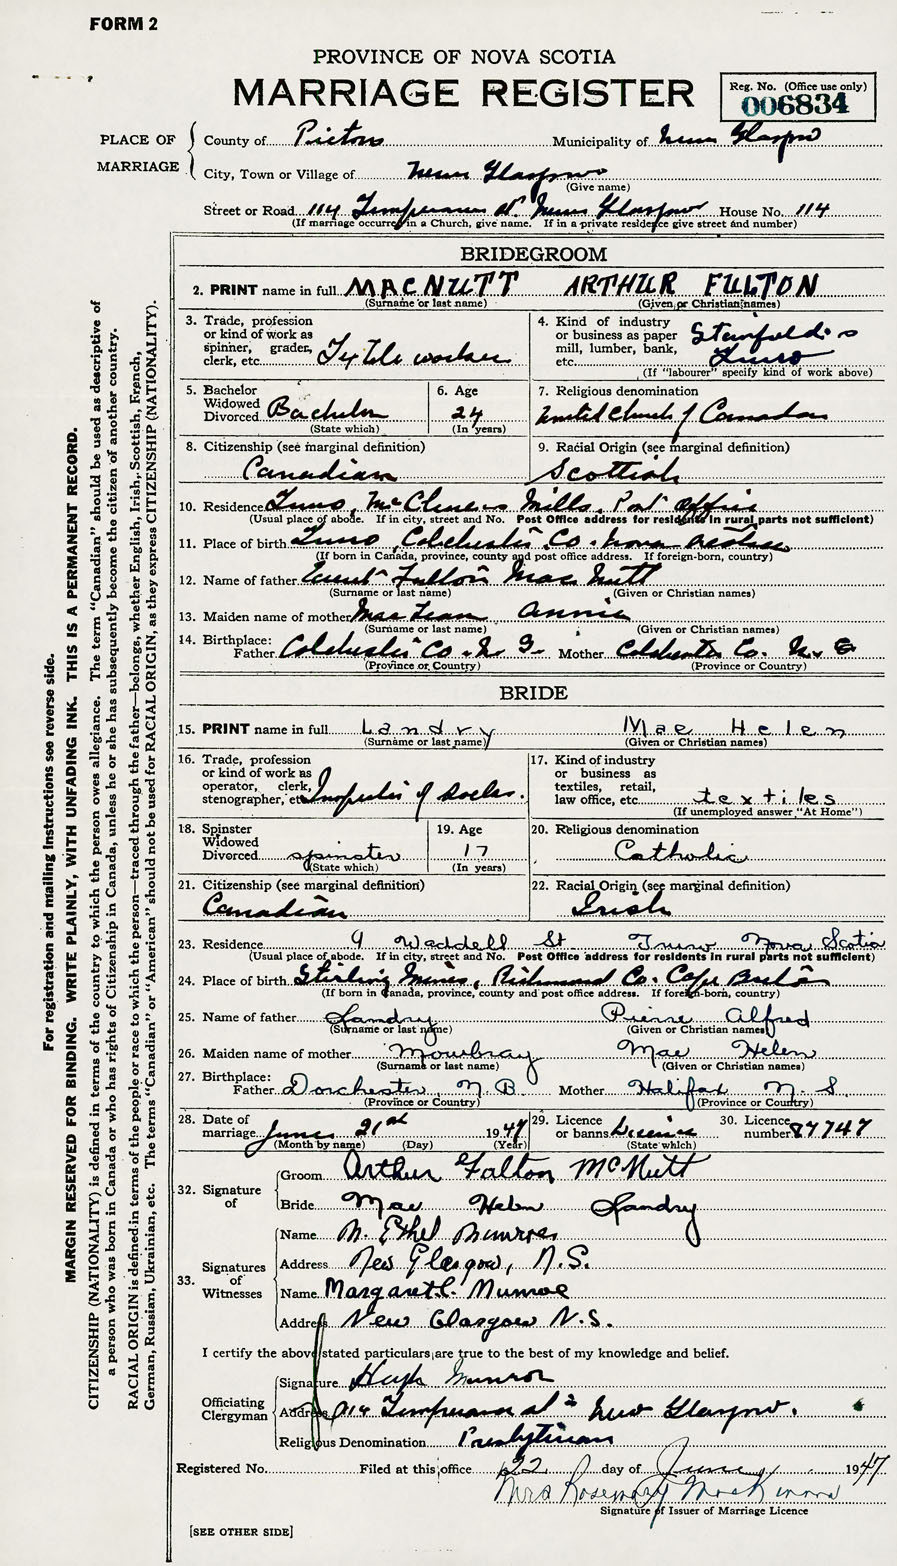 FORM 2
PROVINCE OF NOVA SCOTIA
MARRIAGE REGISTER
Reg. No. (Office use only)
006834
PLACE OF MARRIAGE
County of Pictou Municipality of New Glasgow
City, Town or Village of New Glasgow
(Give name)
Street or Road 114 Temperance St. New Glasgow House No. 114
(If marriage occurred in a Church, give name. If in a private residence give street and number)
BRIDEGROOM
2. PRINT name in full MACNUTT ARTHUR FULTON
(Surname or last name) (Given or Christian names)
3. Trade, profession or kind of work as spinner, grader, clerk, etc. Textile worker
4. Kind of industry or business as paper mill, lumber, bank, etc. Stanfield's Truro
(If "labourer" specify kind of work above)
5. Bachelor Widowed Divorced Bachelor
(State which)
6. Age 24
(In years)
7. Religious denomination
United Church of Canada
8. Citizenship (see marginal definition)
Canadian
9. Racial Origin (see marginal definition)
Scottish
10. Residence Truro, McClure's Mills, Post Office
(Usual place of abode. If in city, street and No. Post Office address for residents in rural parts not sufficient)
11. Place of birth Truro, Colchester Co. Nova Scotia
(If born in Canada, province, county and post office address. If foreign-born, country)
12. Name of father Fulton MacNutt
(Surname or last name) (Given or Christian names)
13. Maiden name of mother MacLean Annie
(Surname or last name) (Given or Christian names)
14. Birthplace: Father Colchester Co. N.S. Mother Colchester Co. N.S.
(Province or Country) (Province or Country)
BRIDE
15. PRINT name in full Landry Mae Helen
(Surname or last name) (Given or Christian names)
16. Trade, profession or kind of work as operator, clerk, stenographer, etc. Inspector of socks.
17. Kind of industry or business as textiles, retail, law office, etc. textiles
(If unemployed answer "At Home")
18. Spinster Widowed Divorced spinster
(State which)
19. Age 17
(In years)
20. Religious denomination
Catholic
21. Citizenship (see marginal definition)
Canadian
22. Racial Origin (see marginal definition)
Irish
23. Residence 9 Waddell St Truro Nova Scotia
(Usual place of abode. If in city, street and No. Post Office address for residents in rural parts not sufficient)
24. Place of birth Stirling Mines, Richmond Co. Cape Breton
(If born in Canada, province, county and post office address. If foreign-born, country)
25. Name of father Landry Pierre Alfred
(Surname or last name) (Given or Christian names)
26. Maiden name of mother Mowbray Mae Helen
(Surname or last name) (Given or Christian names)
27. Birthplace: Father Dorchester, N.B Mother Halifax N.S.
(Province or Country) (Province or Country)
28. Date of marriage June 21st 1947
(Month by name) (Day) (Year)
29. Licence or banns Licence
(State which)
30. Licence number 87747
32. Signature of
Groom Arthur Fulton McNutt
Bride Mae Helen Landry
33. Signatures of Witnesses
Name M. Ethel Munroe
Address New Glasgow, N.S.
Name Margaret C. Munroe
Address New Glasgow N.S.
I certify the above stated particulars are true to the best of my knowledge and belief.
Officiating Clergyman
Signature Hugh Munroe
Address 114 Temperance St New Glasgow.
Religious Denomination Presbyterian
Registered No. Filed at this office 22 day of June 1947
Mrs Rosemary MacKinnon
Signature of Issuer of Marriage Licence
[SEE OTHER SIDE]
For registration and mailing instructions see reverse side.
MARGIN RESERVED FOR BINDING. WRITE PLAINLY, WITH UNFADING INK. THIS IS A PERMANENT RECORD.
CITIZENSHIP (NATIONALITY) is defined in terms of the country to which the person owes allegiance. The term "Canadian" should be used as descriptive of
a person who was born in Canada or who has rights of Citizenship in Canada, unless he or she has subsequently become the citizen of another country.
RACIAL ORIGIN is defined in terms of the people or race to which the person—traced through the father—belongs, whether English, Irish, Scottish, French,
German, Russian, Ukrainian, etc. The terms "Canadian" or "American" should not be used for RACIAL ORIGIN, as they express CITIZENSHIP (NATIONALITY).